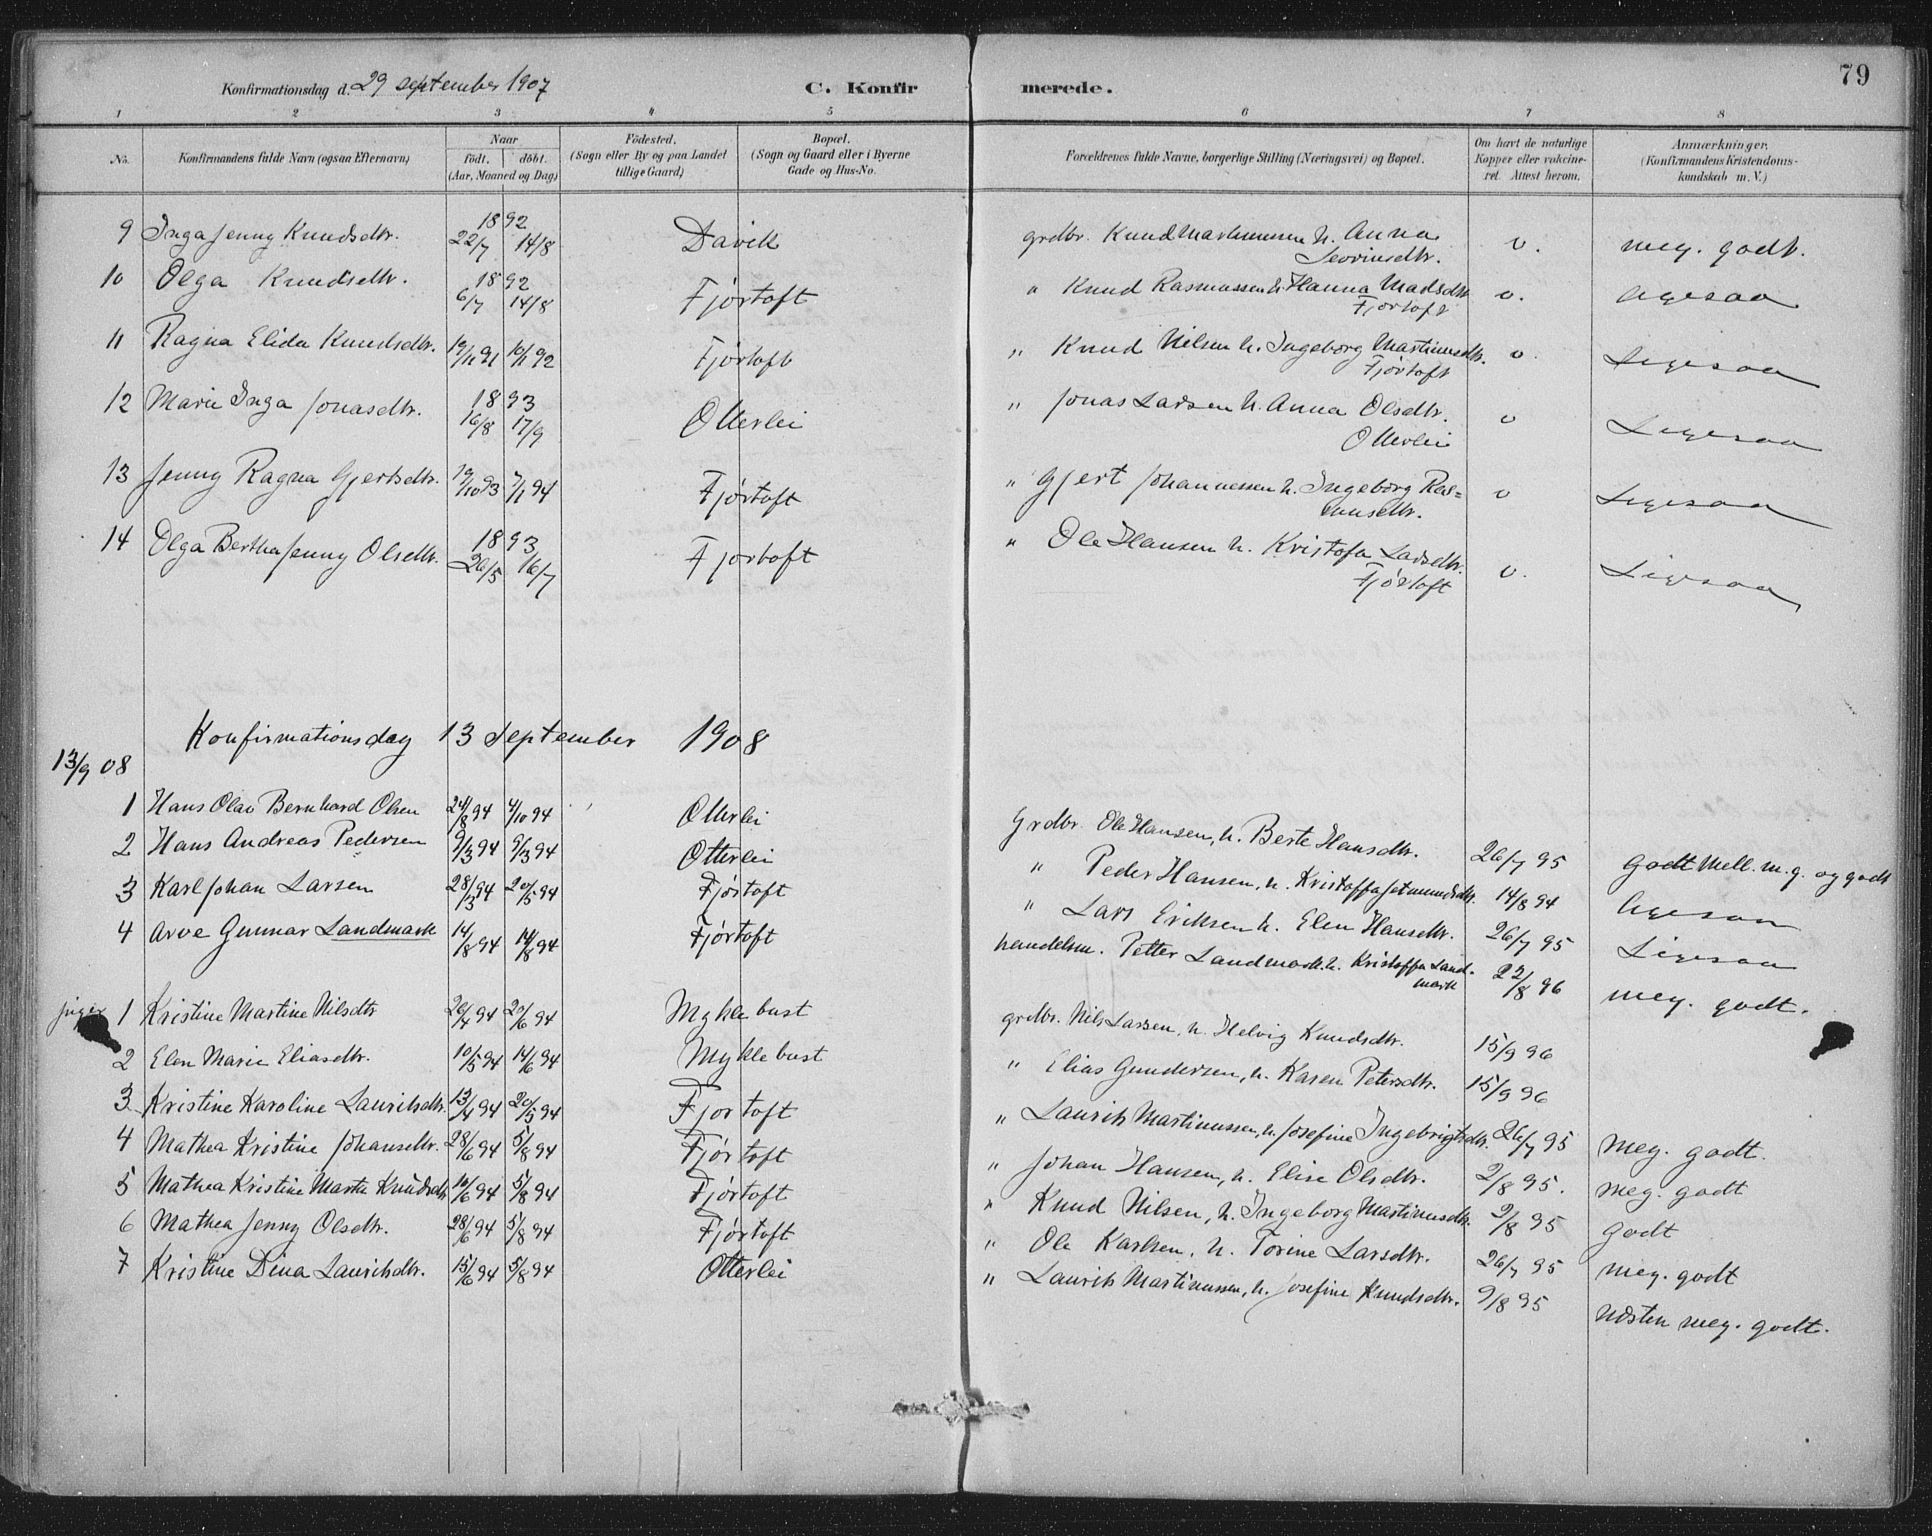 79
Konfirmationsdag d. 29 september 1907 C. Konfirmerede.
1 2 3 4 5 6 7 8
No. Konfirmandens fulde Navn (ogsaa Efternavn) Naar født. døbt. (Aar, Maaned og Dag) Fødested. (Sogn eller By og paa Landet tillige Gaard) Bopæl. (Sogn og Gaard eller i Byerne Gade og Hus-No. Forældrenes fulde Navne, borgerlige Stilling (Næringsvei) og Bopæl. Om havt de naturlige Kopper eller vakcineret. Attest herom. Anmærkninger. (Konfirmandens Kristendomskundskab m. V.)
9 Inga Jenny Knudsdtr. 1892 22/7 14/8 Davik grdbr. Knud h. Anna Sevrinsdtr. v. meg. godt.
10 Olga Knudsdtr. 1892 6/7 14/8 Fjørtoft " Knud Rasmussen h. Hanna Madsdtr. Fjørtoft v. ligesaa
11 Ragna Elida Knudsdtr. 19/11 91 10/1 92 Fjørtoft " Knud Nilsen h. Ingeborg Martinusdtr. Fjørtoft v. Ligesaa
12 Marie Inga Jonasdtr. 1893 16/8 17/9 Otterlei " Jonas Larsen h. Anna Olsdtr. Otterlei v Ligesaa
13 Jenny Ragna Gjertsdtr. 19/10 93 7/1 94 Fjørtoft " Gjert Johannessen h. Ingeborg Rasmusdtr. v Ligesaa
14 Olga Berthe Jenny Olsdtr. 1893 26/5 16/7 Fjørtoft " Ole Hansen h. Kristofa Larsdtr. Fjørtoft v. Ligesaa
Konfirmationsdag 13 september 1908
13/9 08
1 Hans Olav Bernhard Olsen 24/8 94 4/10 94 Otterlei Grdbr. Ole Hansen, h. Berte Hansdtr. 26/7 95 Godt Mell. m. g. og godt
2 Hans Andreas Pedersen 9/3 94 9/3 94 Otterlei " Peder Hansen, h. Kristoffa Jetmundsdtr. 14/8 94 ligesaa
3 Karl Johan Larsen 28/3 94 20/5 94 Fjørtoft " Lars Eriksen h. Elen Hansdtr. 26/7 95 Ligesaa
4 Arve Gunnar Landmark 14/8 94 14/8 94 Fjørtoft handelsm. Petter Landmark h. Kristoffa Landmark 22/8 96 meg. godt.
piger 1 Kristine Martine Nilsdtr 26/4 94 20/6 94 Myklebust grdbr. Nils Larsen, h. Helvig Knudsdtr. 15/9 96
2 Elen Marie Eliasdtr. 10/5 94 14/6 94 Myklebust " Elias Gundersen, h. Karen Petersdtr. 15/9 96
3 Kristine Karoline Lauritsdtr. 13/4 94 20/5 94 Fjørtoft " Laurits Martinussen, h. Josefine Ingebrigtsdtr. 26/7 95 meg. godt.
4 Mathea Kristine Johansdtr. 28/6 94 5/8 94 Fjørtoft " Johan Hansen, h. Elise Olsdtr. 2/8 95. meg. godt
5 Mathea Kristine Marta Knudsdtr 10/6 94 5/8 94 Fjørtoft " Knud Nilsen, h. Ingeborg Martinusdtr. 2/8 95 godt
6 Mathea Jenny Olsdtr. 28/6 94 5/8 94 Fjørtoft " Ole Karlsen, h. Torine Larsdtr. 26/7 95 meg. godt
7 Kristine Dina Lauritsdtr. 15/6 94 5/8 94 Otterlei " Laurits Martinussen, h. Josefine Knudsdtr. 9/8 95 næsten meg. godt.